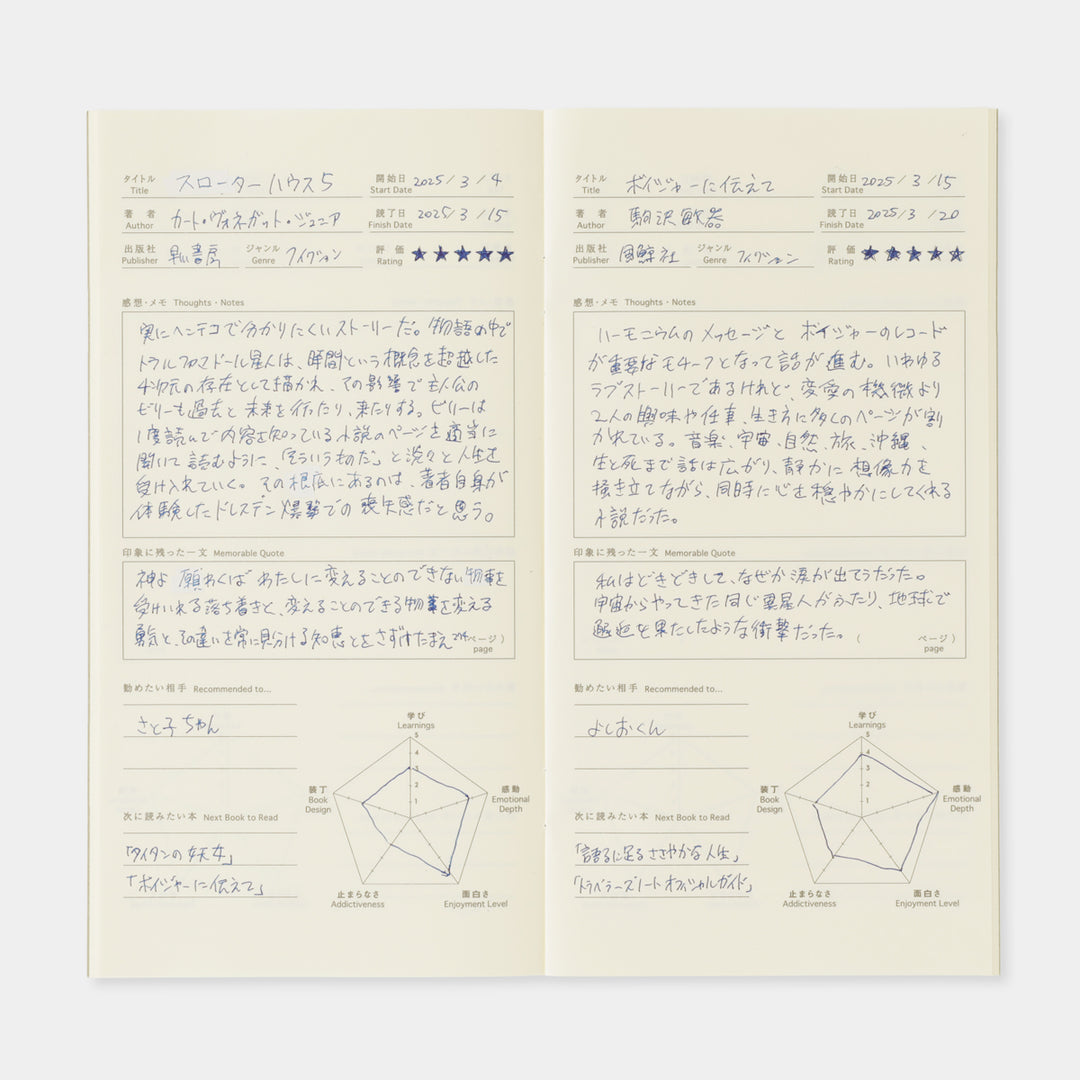 タイトル
Title
スローターハウス5
開始日
Start Date
2025/3/4
著者
Author
カート・ヴォネガット・ジュニア
読了日
Finish Date
2025/3/15
出版社
Publisher
早川書房
ジャンル
Genre
フィクション
評価
Rating
★★★★★
感想・メモ Thoughts・Notes
実にヘンテコで分かりにくいストーリーだ。物語の中で
トラルファマドール星人は、時間という概念を超越した
4次元の存在として描かれ、その影響で主人公の
ビリーも過去と未来を行ったり、来たりする。ビリーは
1度読んで内容を知っている小説のページを適当に
開いて読むように、「そういうものだ」と淡々と人生を
受け入れていく。その根底にあるのは、著者自身が
体験したドレスデン爆撃での喪失感だと思う。
印象に残った一文 Memorable Quote
神よ 願わくばわたしに変えることのできない物事を
受けいれる落ち着きと、変えることのできる物事を変える
勇気と、その違いを常に見分ける知恵とをさずけたまえ
ページ)
page
勧めたい相手 Recommended to...
さと子ちゃん
次に読みたい本 Next Book to Read
「タイタンの妖女」
「ボイジャーに伝えて」
学び
Learnings
5
4
3
2
1
感動
Emotional
Depth
面白さ
Enjoyment Level
止まらなさ
Addictiveness
装丁
Book
Design
タイトル
Title
ボイジャーに伝えて
開始日
Start Date
2025/3/15
著者
Author
駒沢敏器
読了日
Finish Date
2025/3/20
出版社
Publisher
風鯨社
ジャンル
Genre
フィクション
評価
Rating
★★★★★
感想・メモ Thoughts・Notes
ハーモニウムのメッセージと ボイジャーのレコード
が重要なモチーフとなって話が進む。いわゆる
ラブストーリーであるけれど、恋愛の機微より
2人の興味や仕事、生き方に多くのページが割
かれている。音楽、宇宙、自然、旅、沖縄、
生と死まで話は広がり、静かに想像力を
掻き立てながら、同時に心を穏やかにしてくれる
小説だった。
印象に残った一文 Memorable Quote
私はどきどきして、なぜか涙が出そうだった。
宇宙からやってきた同じ異星人がふたり、地球で
邂逅を果たしたような衝撃だった。
( ページ)
page
勧めたい相手 Recommended to...
よしおくん
次に読みたい本 Next Book to Read
「語るに足るささやかな人生」
「トラベラーズノートオフィシャルガイド」
学び
Learnings
5
4
3
2
1
感動
Emotional
Depth
面白さ
Enjoyment Level
止まらなさ
Addictiveness
装丁
Book
Design